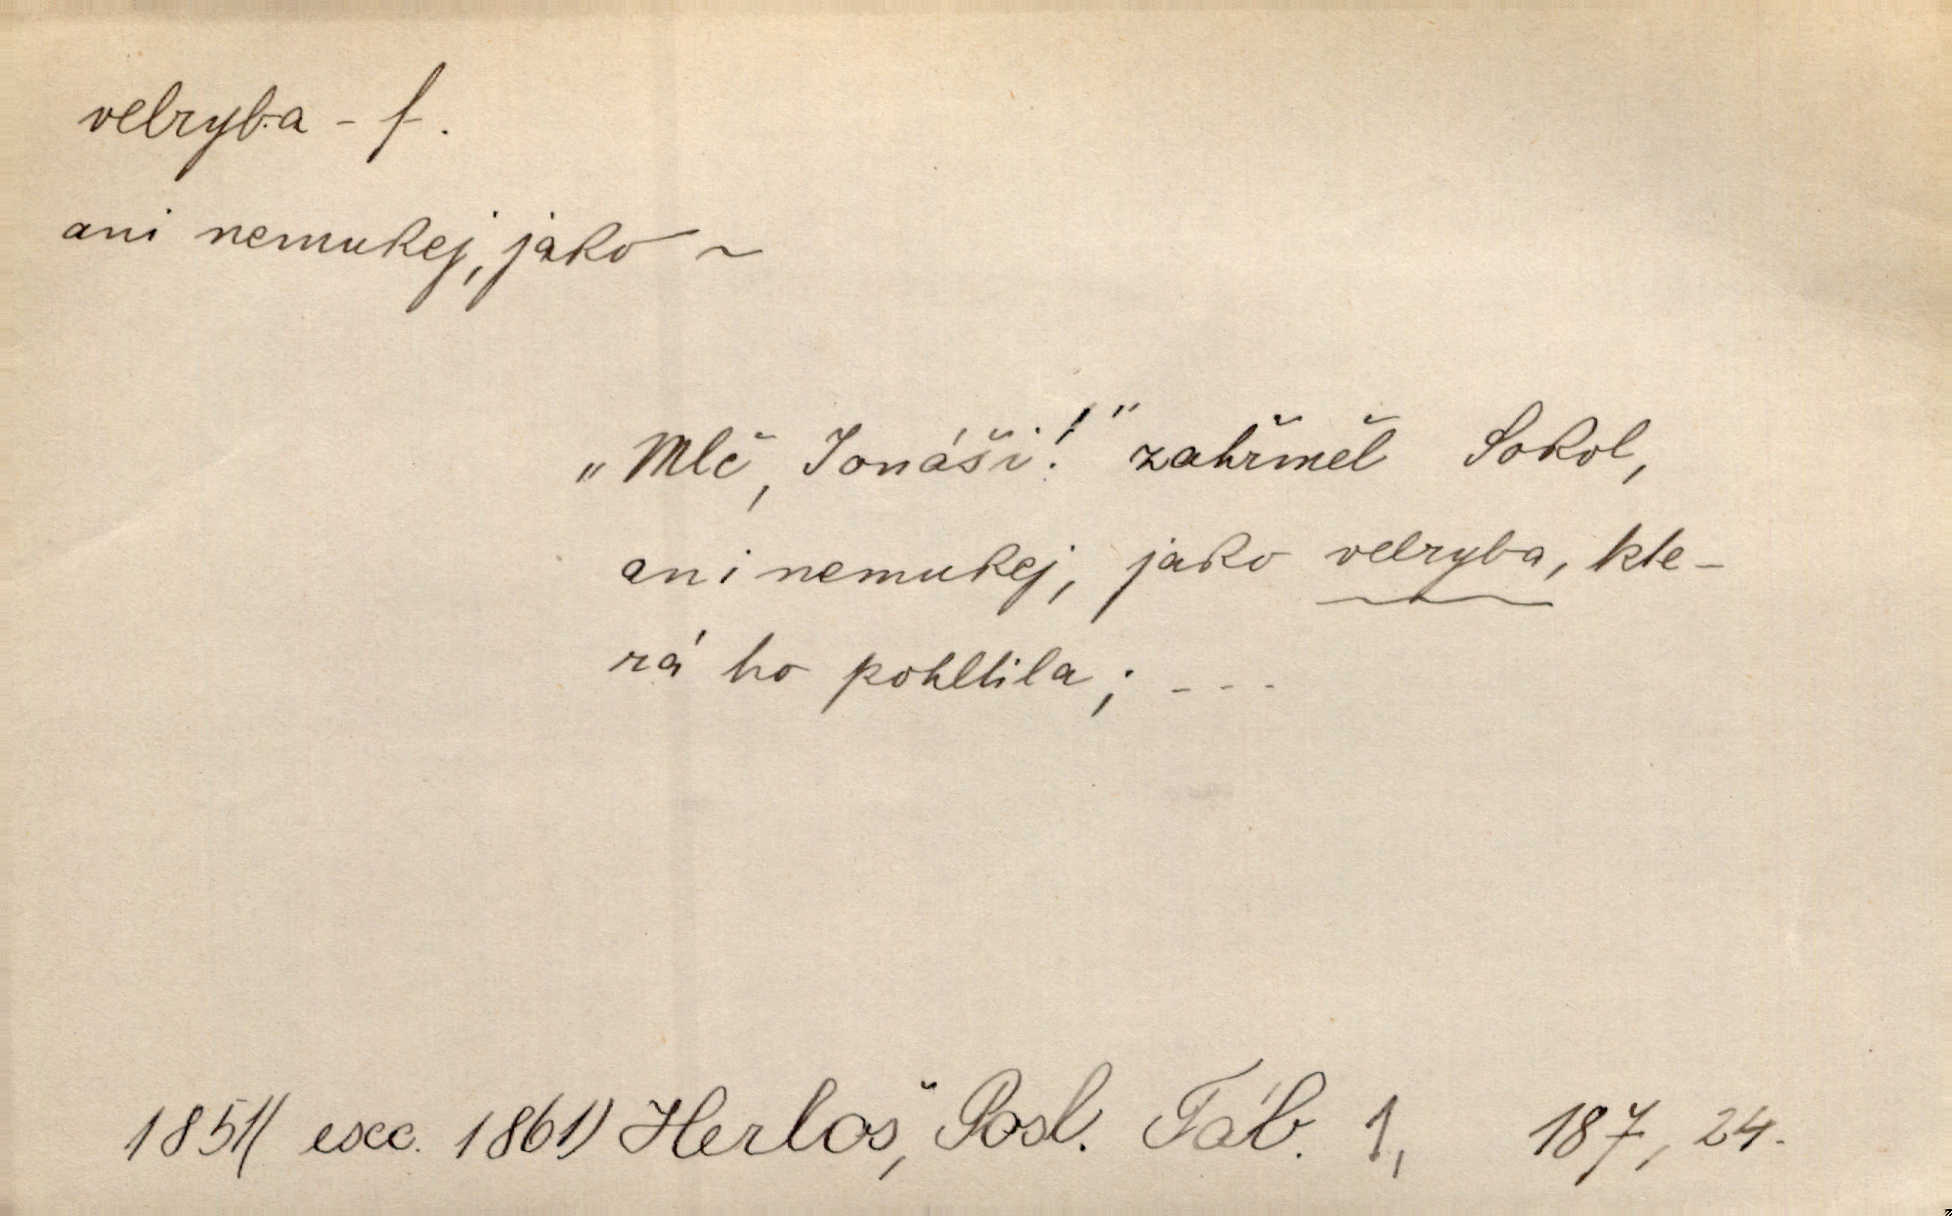 velryba - f.
ani nemukej, jako ~
„Mlč, Jonáši!" zahřměl Sokol,
ani nemukej, jako velryba, kte-
rá ho pohltila; ---
1851( exc. 1861) Herloš, Posl. Táb. 1, 187, 24.